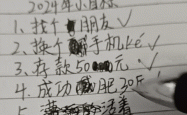 2024年小目标
1、找个朋友✓
2、换个手机ké✓
3、存款50元✓
4、成功肥30斤
5、活着